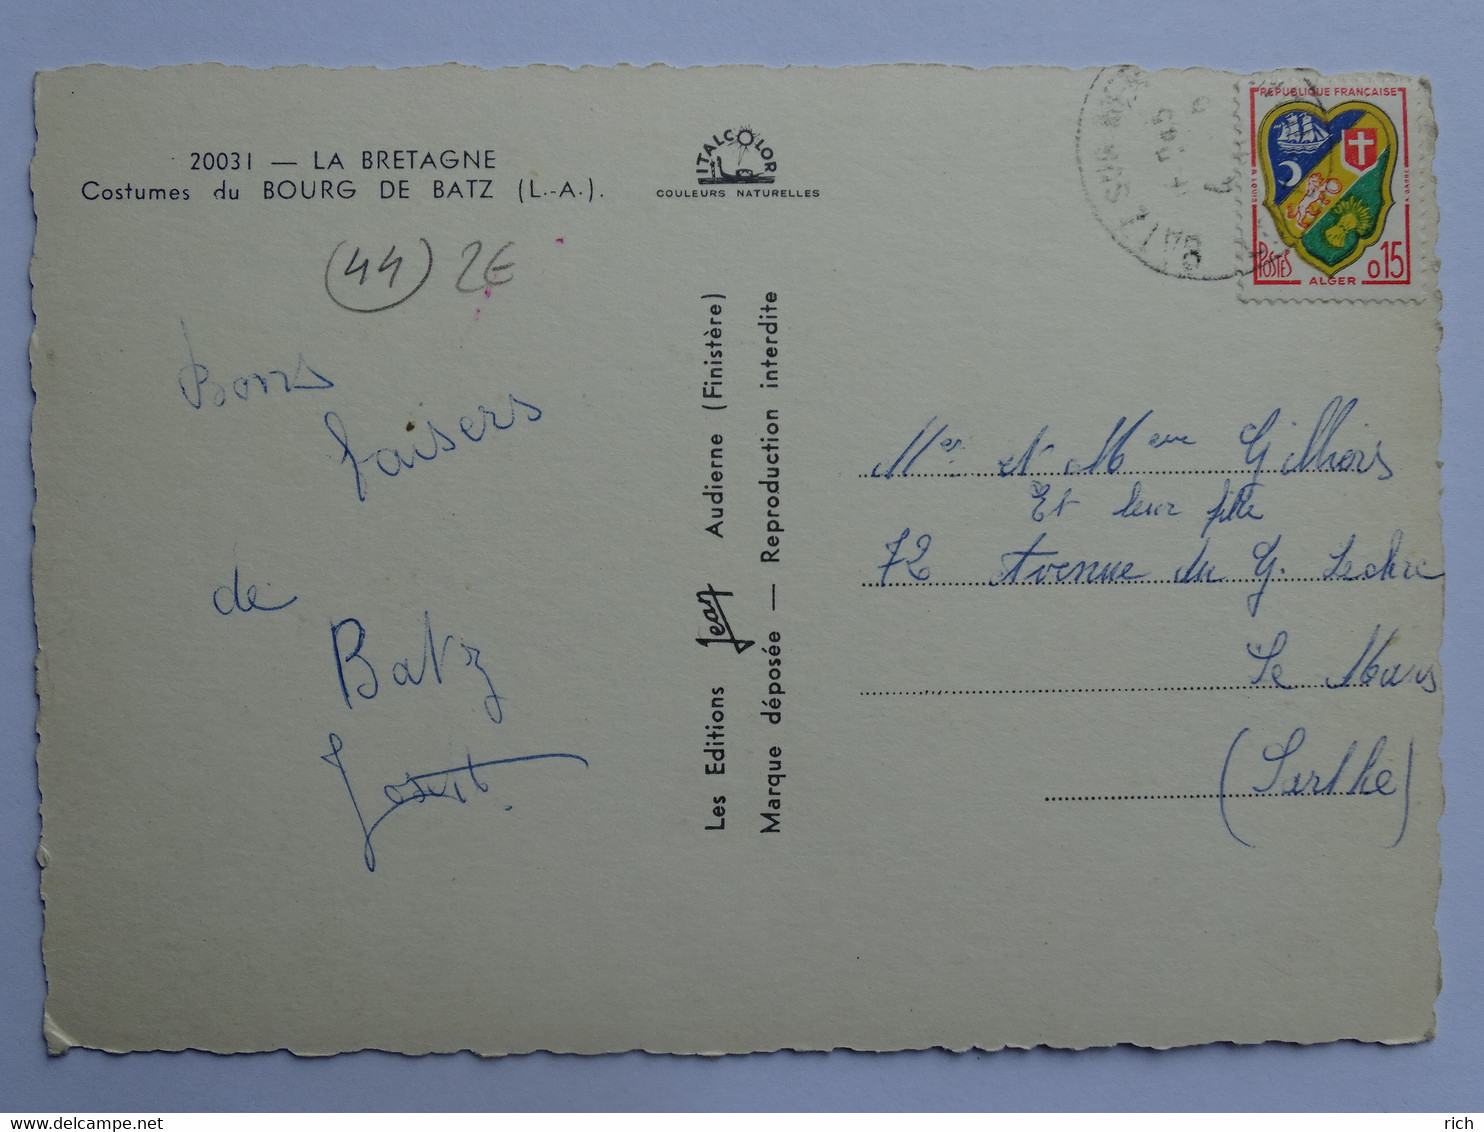 20031 — LA BRETAGNE
Costumes du BOURG DE BATZ (L.-A.).
ITALCOLOR
COULEURS NATURELLES
(44) 2€
Bons
baisers
de
Batz
Les Editions Jean Audierne (Finistère)
Marque déposée — Reproduction interdite
BATZ SUR MER
REPUBLIQUE FRANÇAISE
POSTES
0,15
ALGER
Mer et Mme
Et leur fille
72 Avenue du G. Leclerc
Le Mans
(Sarthe)
rich